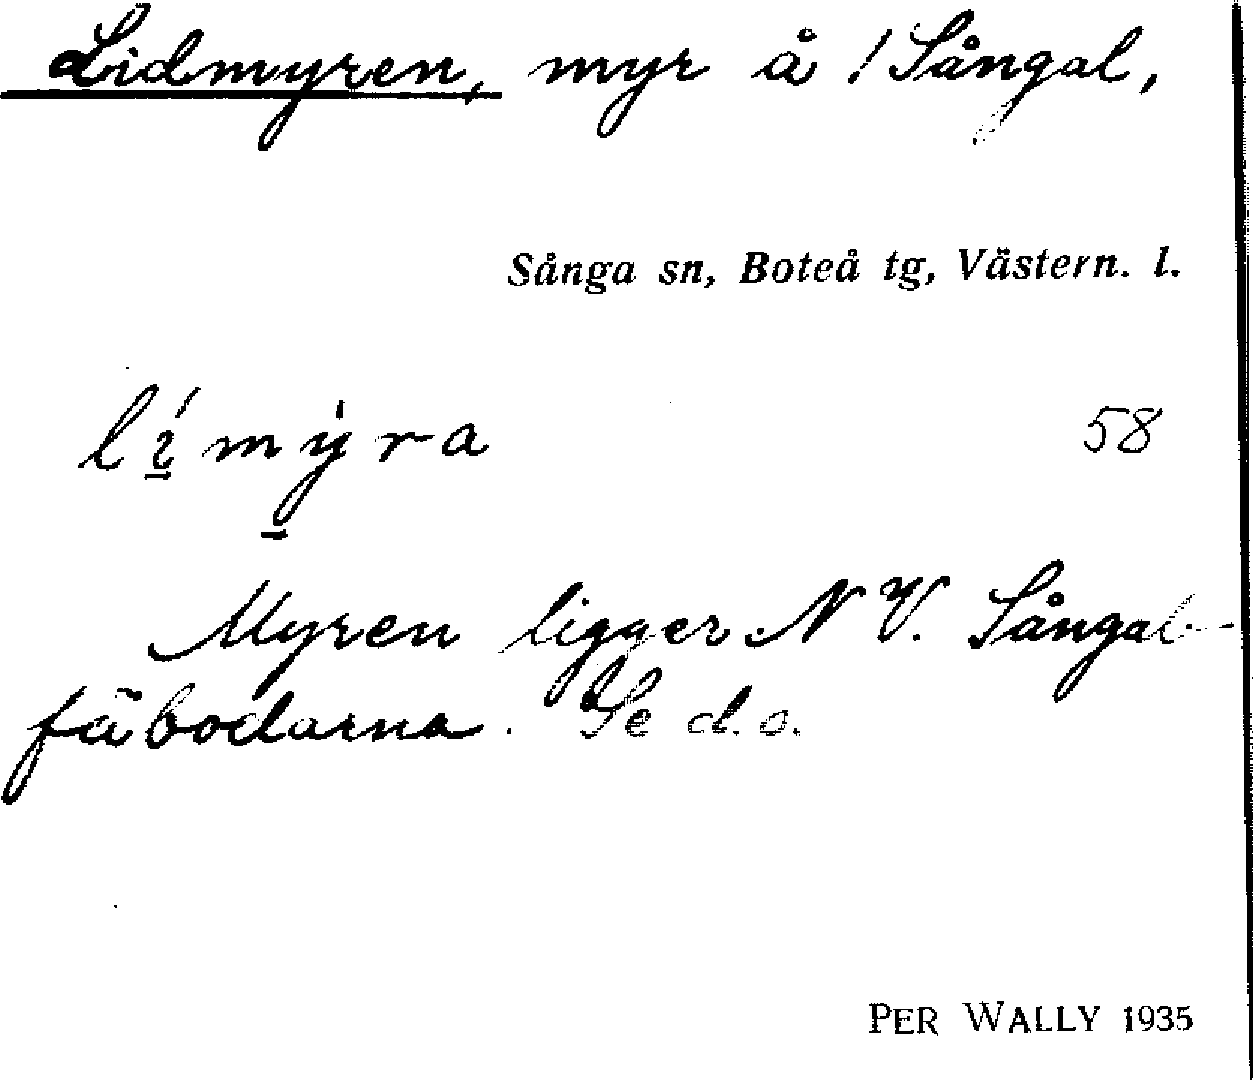 Lidmyren, myr å /Sångal,
Sånga sn, Boteå tg, Västern. l.
lí̱mẏ̱ra 58
Myren ligger N V. Sångal-
fäbodarna. Se d.o.
PER WALLY 1935